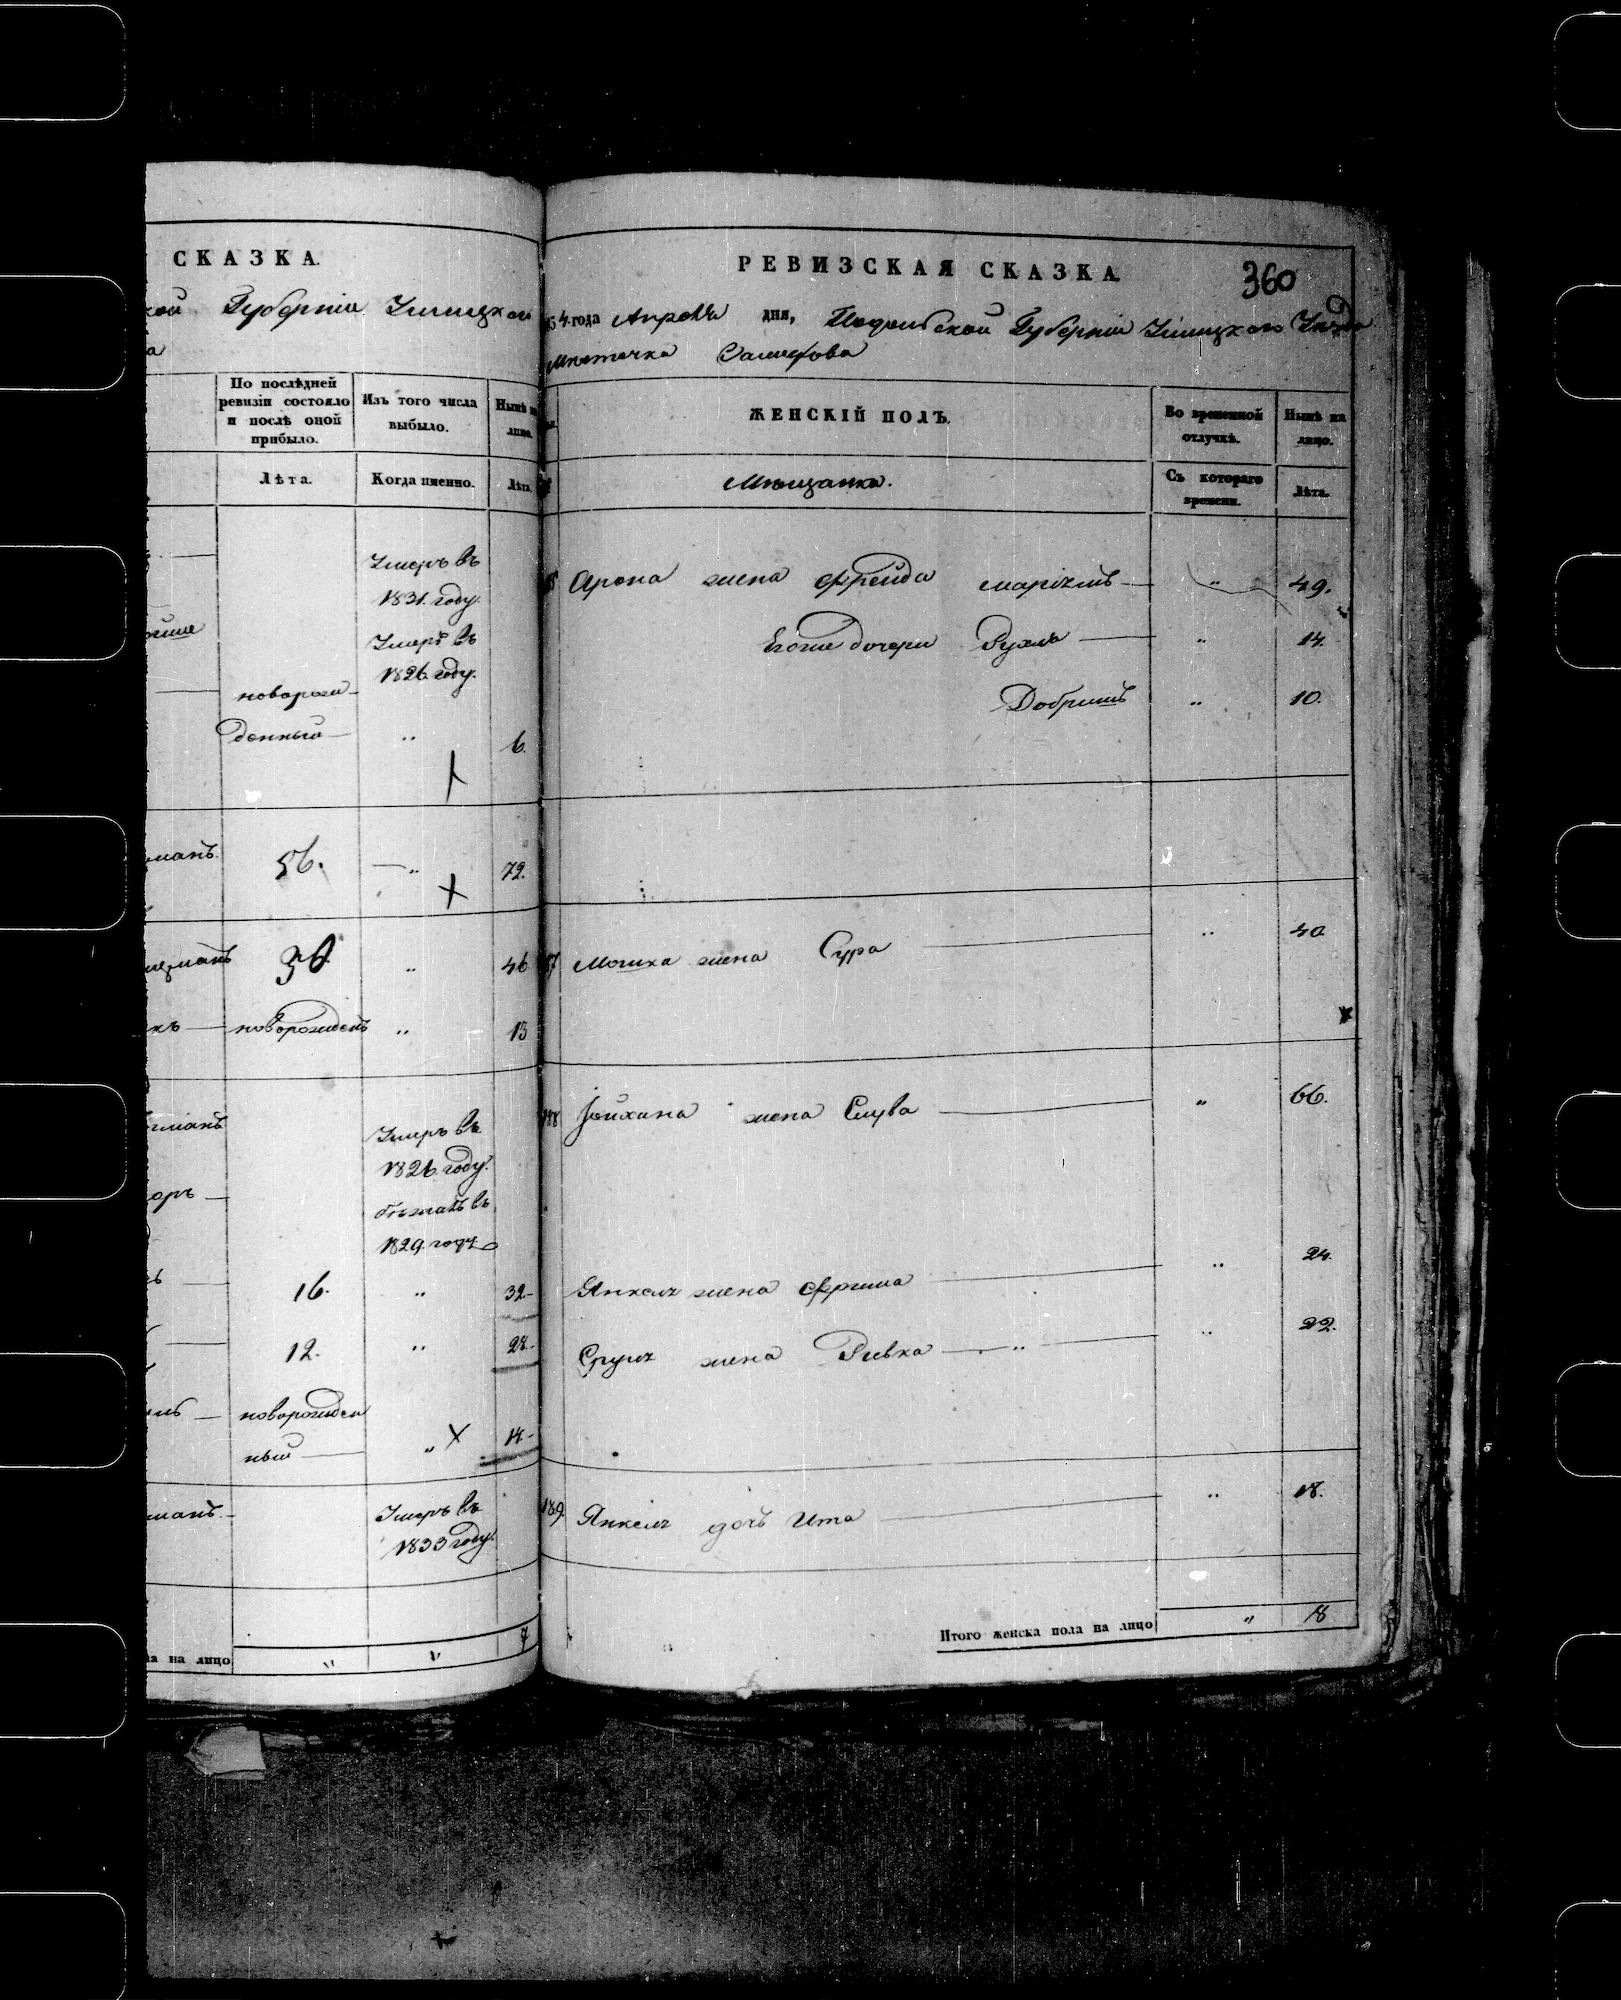 СКАЗКА.
Губерніи Ушицкаго
По послѣдней ревизіи состояло и послѣ оной прибыло.
Изъ того числа выбыло.
Нынѣ на лицо.
Лѣта.
Когда именно.
Лѣта.
Умеръ въ
1831. году.
Умеръ въ
1826. году.
новорож-
денный „ 6.
56. — „ 72.
30. „ 46
новорожден „ 13
Умеръ въ
1826. году.
бѣжалъ въ
1829. году
16. „ 32.
12. „ 28.
новорожден
ный „ 14
Умеръ въ
1833 году.
7
на лицо „ „
РЕВИЗСКАЯ СКАЗКА.
360
54 года Апрѣля дня, Подольской Губерніи Ушицкаго Уѣзда
Мѣстечка
ЖЕНСКІЙ ПОЛЪ.
Во временной отлучкѣ.
Нынѣ на лицо.
Мѣщанка.
Съ котораго времени.
Лѣта.
Арона жена Фрейда — „ 49.
Егоже дочери Рухля — „ 14.
Добришъ „ 10.
87 Мошка жена Сура — „ 40
188 жена Слува — „ 66.
Янкеля жена Фрима — „ 24.
Сруля жена Ривка — „ 22.
189. Янкеля дочь Ита — „ 18.
Итого женска пола на лицо „ 8